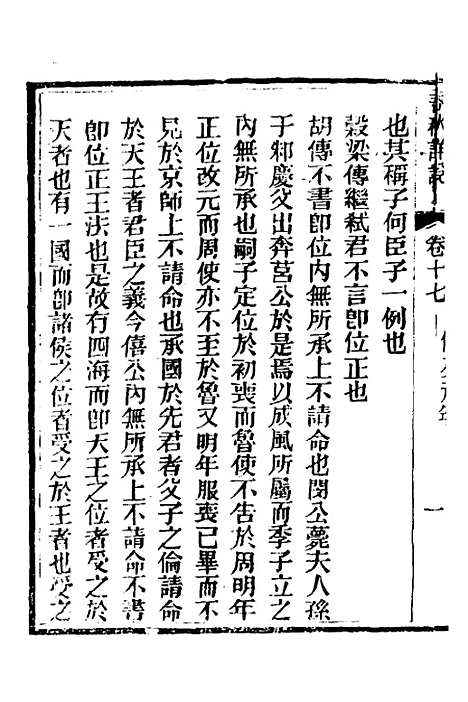 春秋詳說
卷十七
一
也其稱子何臣子一例也
穀梁傳繼弒君不言卽位正也
胡傳不書卽位內無所承上不請命也閔公薨夫人孫
于邾慶父出奔莒公於是焉以成風所屬而季子立之
內無所承也嗣子定位於初喪而魯使不告於周明年
正位改元而周使亦不至於魯又明年服喪已畢而不
見於京師上不請命也承國於先君者父子之倫請命
於天王者君臣之義今僖公內無所承上不請命不書
卽位正王法也是故有四海而卽天王之位者受之於
天者也有一國而卽諸侯之位者受之於王者也受之